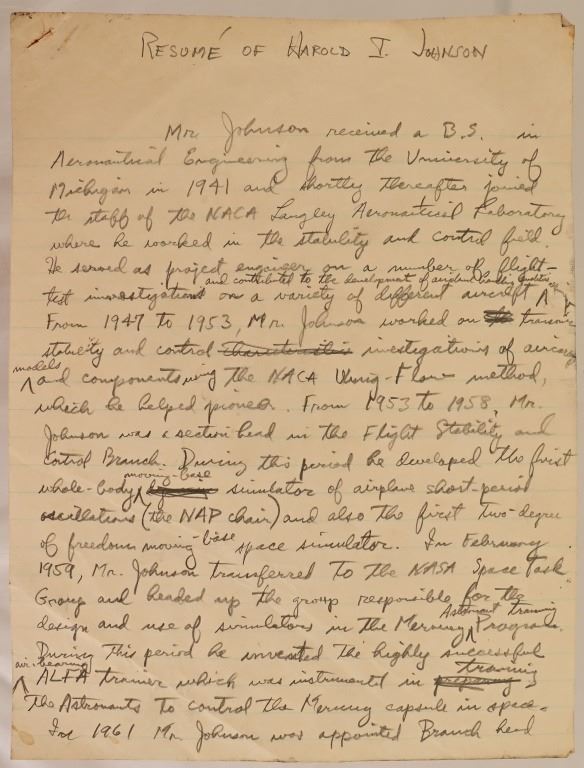 RESUMÉ OF HAROLD I. JOHNSON
Mr. Johnson received a B.S. in
Aeronautical Engineering from the University of
Michigan in 1941 and shortly thereafter joined
the staff of the NACA Langley Aeronautical Laboratory
where he worked in the stability and control field.
He served as project engineer on a number of flight-
and contributed to the development of airplane handling qualities
test investigations on a variety of different aircraft
From 1947 to 1953, Mr. Johnson worked on transonic
stability and control characteristics investigations of aircraft
models
and components using the NACA Wing-Flow method,
which he helped pioneer. From 1953 to 1958, Mr.
Johnson was a section head in the Flight Stability and
Control Branch. During this period he developed the first
moving-base
whole-body simulator of airplane short-period
oscillations (the NAP chair) and also the first two-degree
of freedom moving-base space simulator. In February
1959, Mr. Johnson transferred to the NASA Space Task
Group and headed up the group responsible for the
Astronaut training
design and use of simulators in the Mercury Program.
During this period he invented the highly successful
air-bearing training
ALFA trainer which was instrumental in preparing
the Astronauts to control the Mercury capsule in space.
In 1961 Mr. Johnson was appointed Branch head